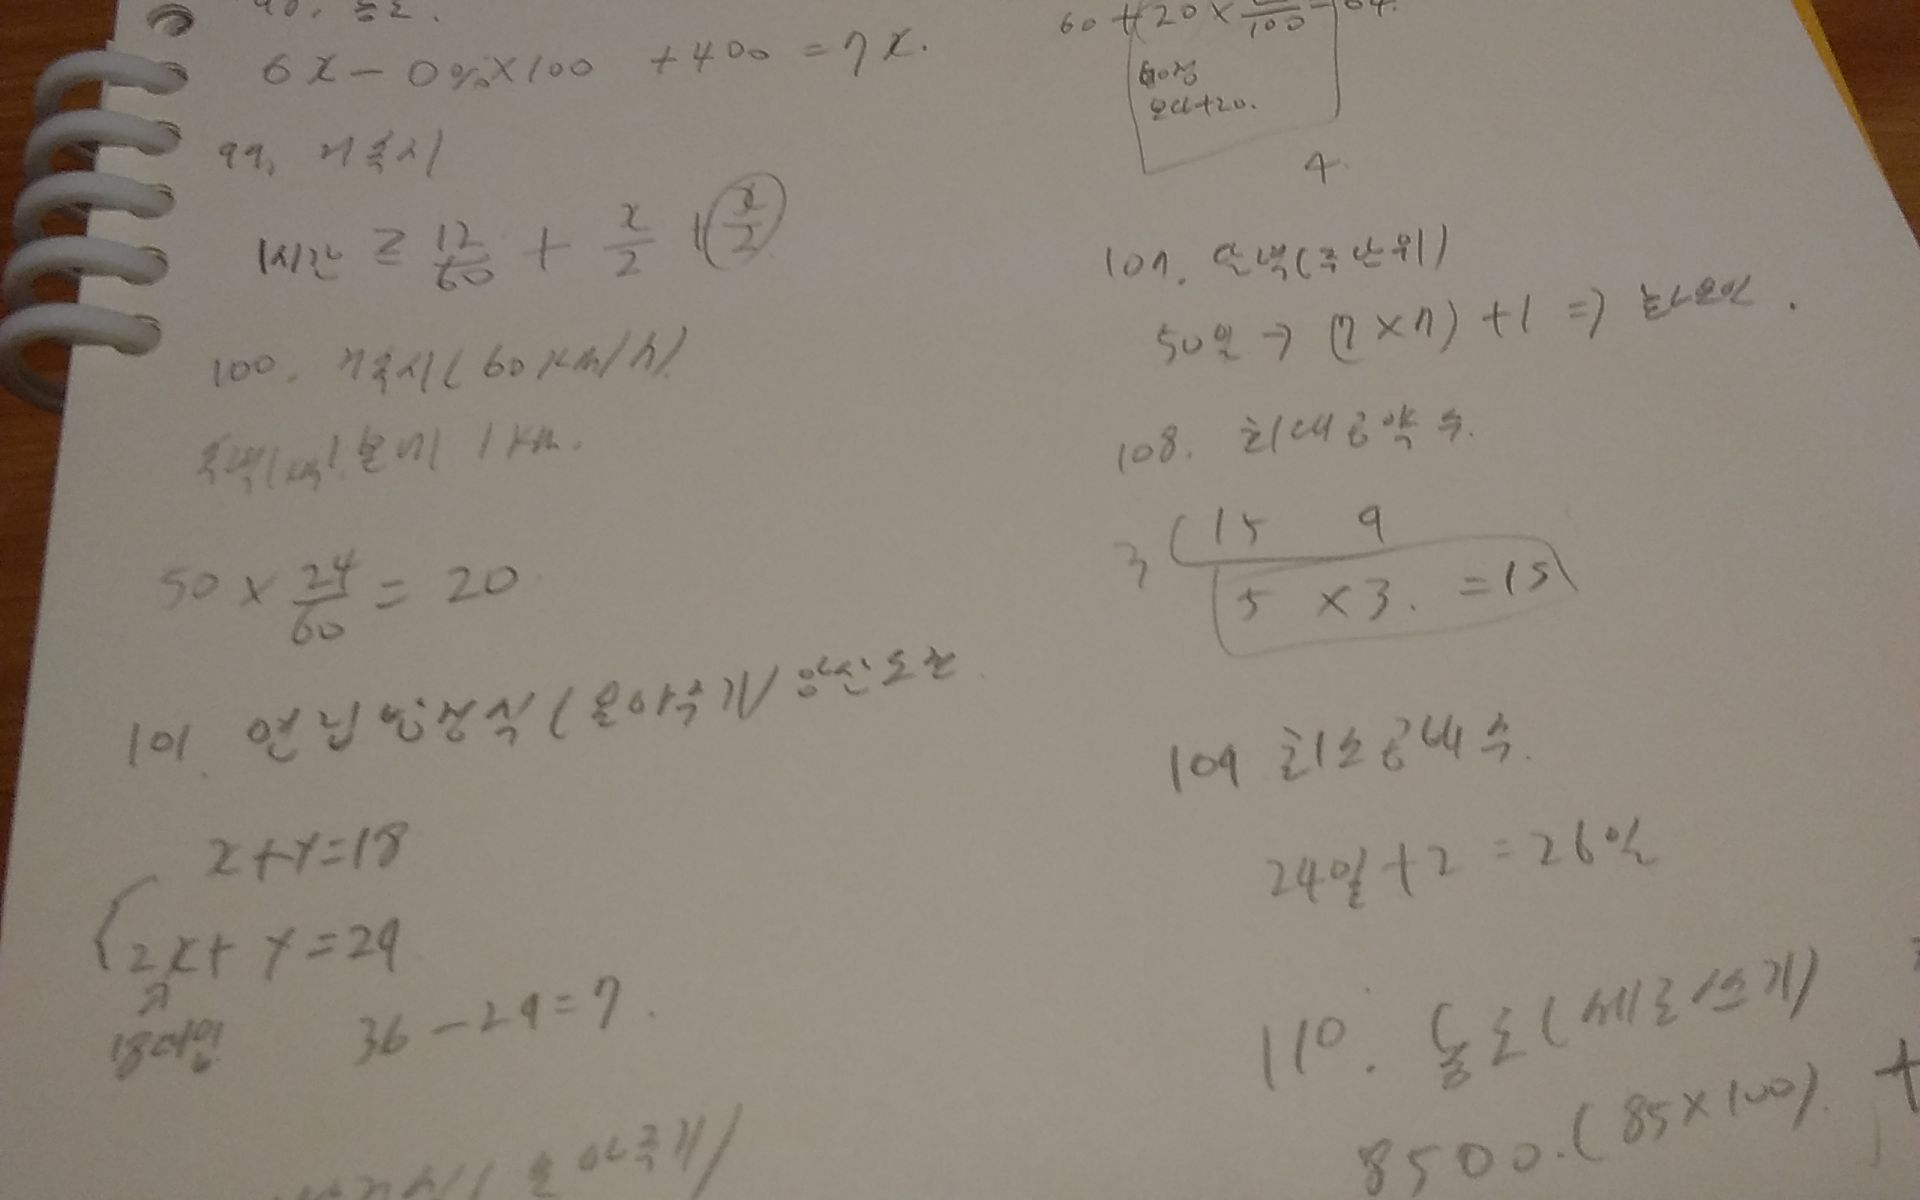 농도.
6x - 0% × 100 + 400 = 7x.
99. 거속시
1시간 ≥ 12/60 + x/2 + x/2
100. 거속시 (60km/h)
1km.
50 × 24/60 = 20
101. 연립방정식 (몰아주기)
x+y=18
2x+y=29
36-29=7.
60 + 20 ×
4.
107. 달력(주단위)
50일 → (7×7)+1 ⇒
108. 최대공약수.
3 15 9
5 × 3. = 15
109 최소공배수.
24일+2=26일
110. 농도(세로쓰기)
8500.(85×100). +